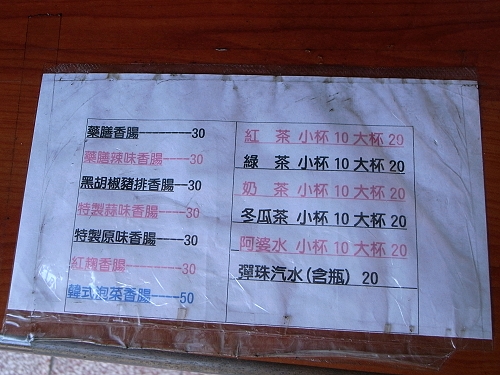 藥膳香腸--------30
藥膳辣味香腸---30
黑胡椒豬排香腸--30
特製蒜味香腸----30
特製原味香腸----30
紅麴香腸--------30
韓式泡菜香腸-----50
紅 茶 小杯 10 大杯 20
綠 茶 小杯 10 大杯 20
奶 茶 小杯 10 大杯 20
冬瓜茶 小杯 10 大杯 20
阿婆水 小杯 10 大杯 20
彈珠汽水(含瓶) 20